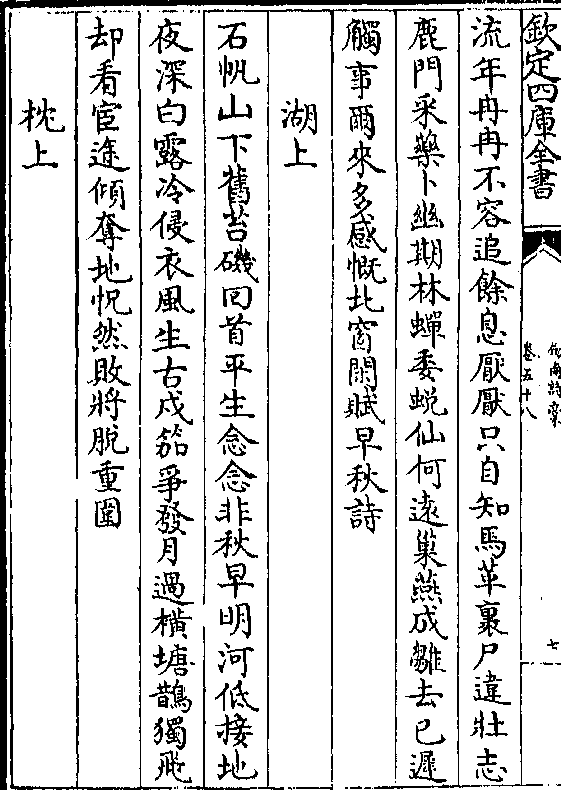 欽定四庫全書
劍南詩稾
卷五十八
七
流年冉冉不容追餘息厭厭只自知馬革裹尸違壯志
鹿門采藥卜幽期林蟬委蛻仙何遠巢燕成雛去已遲
觸事爾來多感慨北窗閑賦早秋詩
湖上
石帆山下舊苔磯回首平生念念非秋早明河低接地
夜深白露冷侵衣風生古戍笳爭發月過橫塘鵲獨飛
却看宦途傾奪地怳然敗將脫重圍
枕上